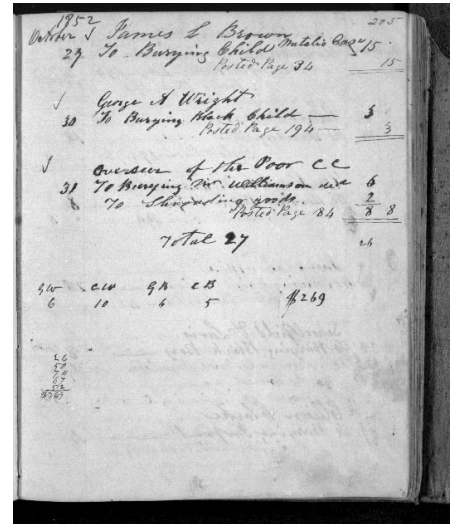 1852 205
October James L Brown
29 To Burying Child Metalic Case 15
Posted Page 34 15
George A Wright
30 To Burying Black Child 3
Posted Page 194 3
Overseer of the Poor CC
31 To Burying Mr Williamson 6
To Shrouding goods 2
Posted Page 84 8 8
Total 27 26
GW CW GB CB
6 10 6 5 $269
26
50
67
52